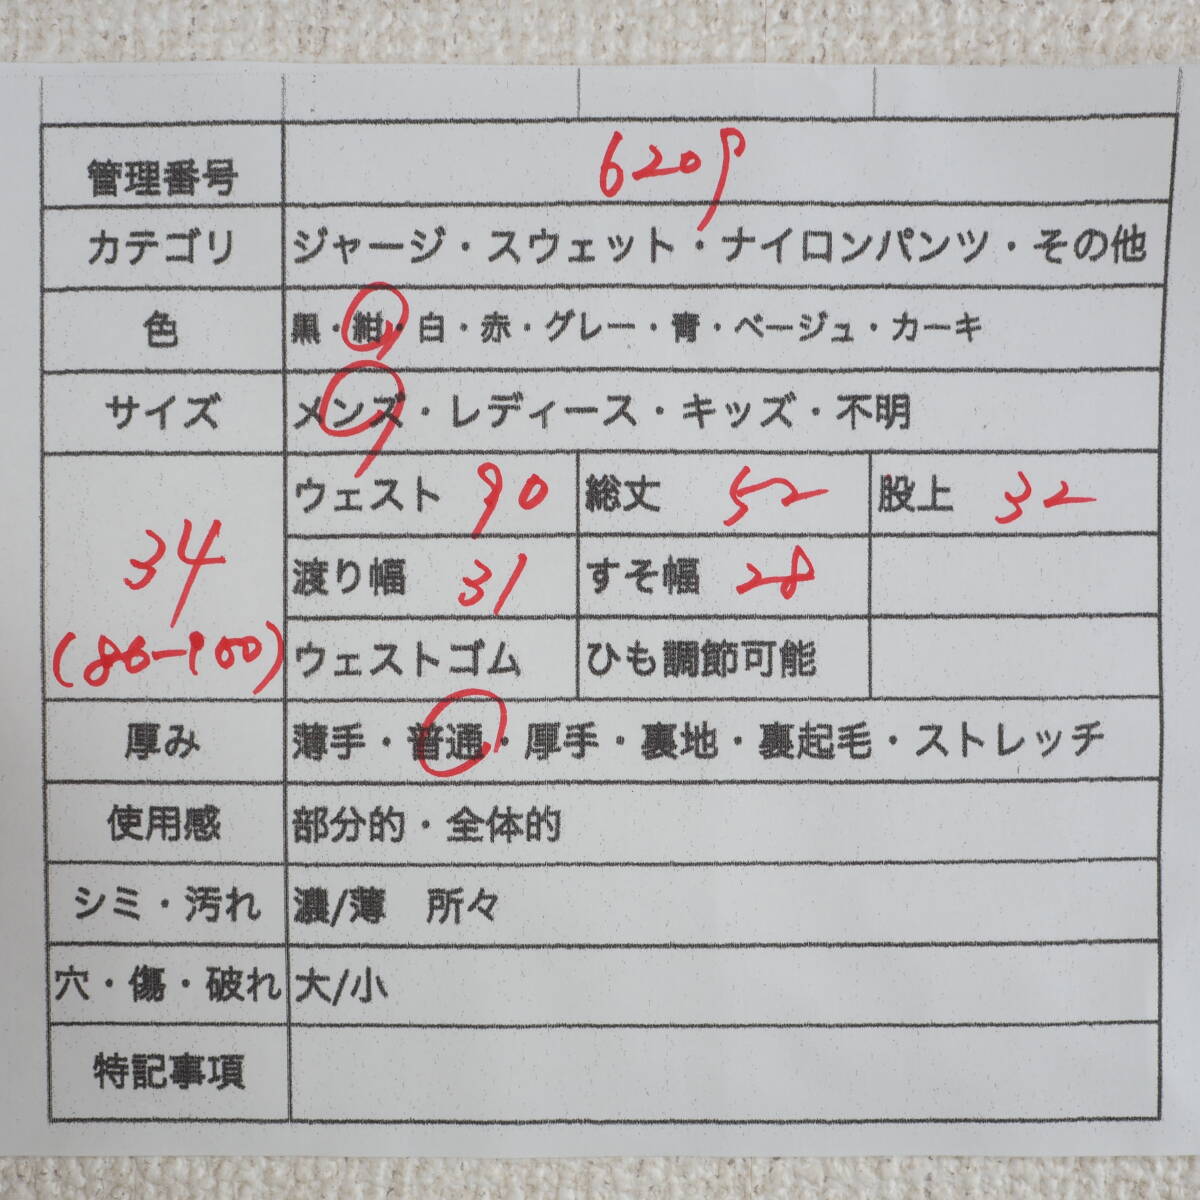 管理番号 6209
カテゴリ ジャージ・スウェット・ナイロンパンツ・その他
色 黒・紺・白・赤・グレー・青・ベージュ・カーキ
サイズ メンズ・レディース・キッズ・不明
34
(86-100)
ウェスト 90 総丈 52 股上 32
渡り幅 31 すそ幅 28
ウェストゴム ひも調節可能
厚み 薄手・普通・厚手・裏地・裏起毛・ストレッチ
使用感 部分的・全体的
シミ・汚れ 濃/薄 所々
穴・傷・破れ 大/小
特記事項